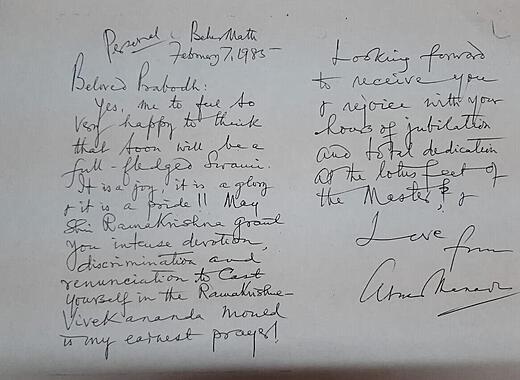 Personal, Belur Math
February 7, 1985
Beloved Prabodh:
Yes, me to feel so
very happy to think
that soon will be a
full-fledged Swami.
It is a joy, it is a glory
& it is a pride!! May
Shri Ramakrishna grant
you intense devotion,
discrimination and
renunciation to cast
yourself in the Ramakrishna-
Vivekananda mould
is my earnest prayer!
Looking forward
to receive you
& rejoice with your
hours of jubilation
and total dedication
at the lotus feet of
the Master,
Love
from